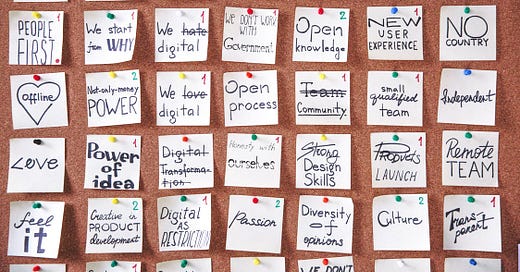 PEOPLE
FIRST.
1
We start
from WHY
1
We hate
digital
1
We DON'T WORK
with
Government
2
Open
knowledge
1
NEW
USER
EXPERIENCE
NO
COUNTRY
offline
2
Not-only-money
POWER
We love
digital
1
Open
process
Team
Community.
1
small
qualified
TEAM
Independent
Love
1
Power
of
idea
1
Digital
Transforma-
tion
1
Honesty with
ourselves
2
Strong
Design
Skills
LAUNCH
1
Remote
TEAM
feel
it
2
Creative in
PRODUCT
development
1
Digital
AS
RESTRICTION
Passion
2
Diversity
of
opinions
Culture
1
Trans
parent
1
2
1
WE DON'T
2